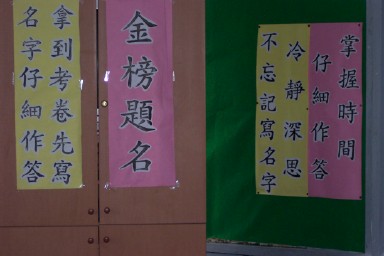 金榜題名
拿到考卷先寫
名字仔細作答
掌握時間
仔細作答
冷靜深思
不忘記寫名字